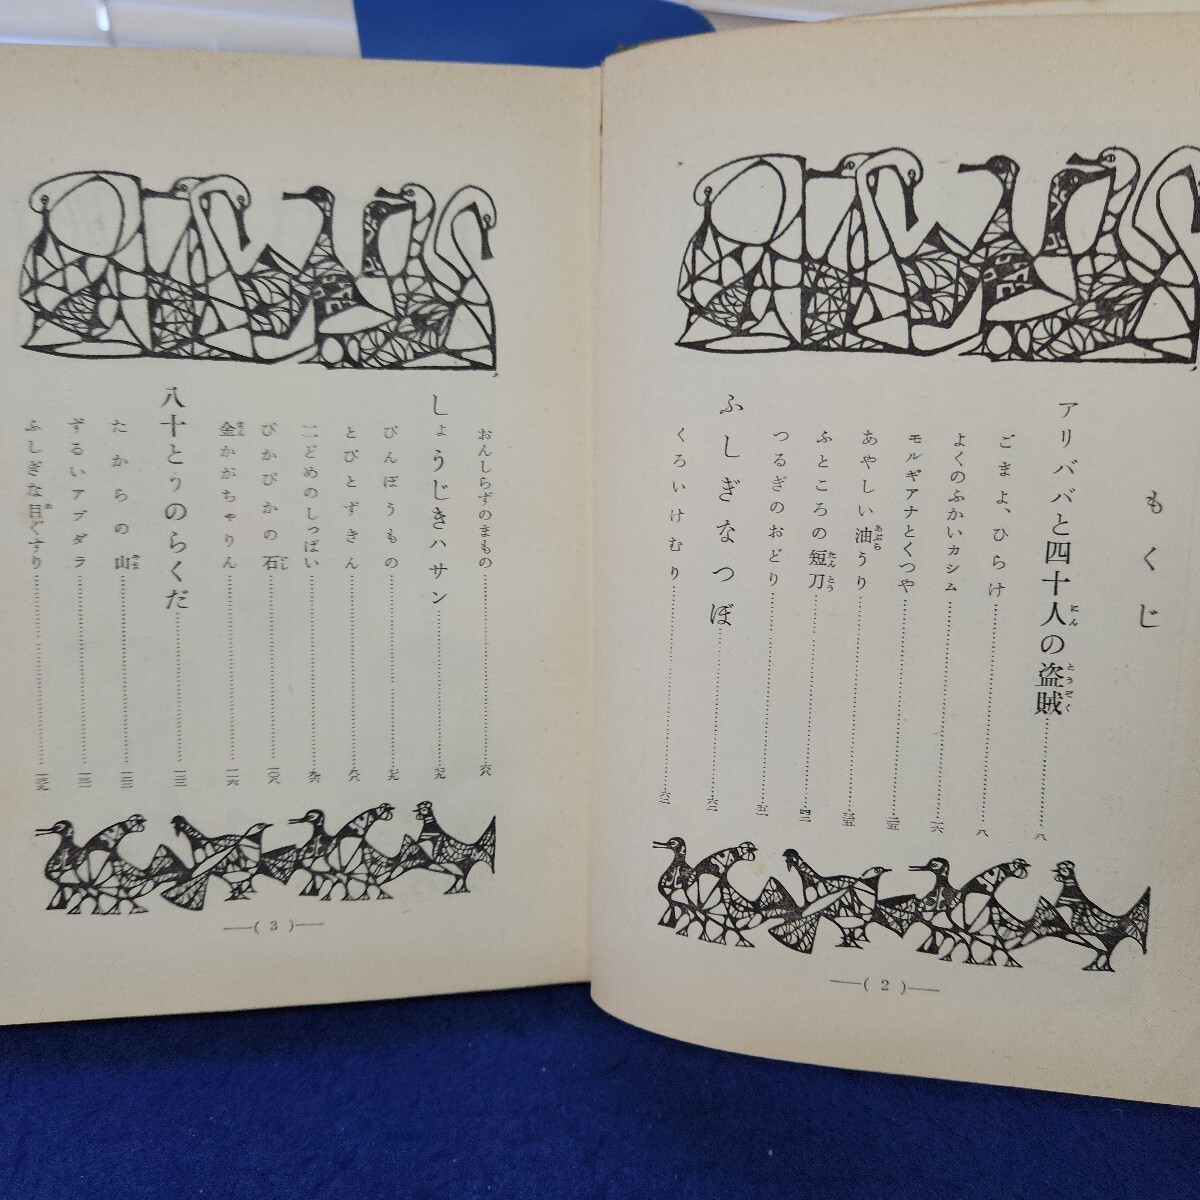 もくじ
アリババと四十人の盗賊……八
ごまよ、ひらけ……八
よくのふかいカシム……一六
モルギアナとくつや……二五
あやしい油うり……三五
ふところの短刀……四二
つるぎのおどり……五一
ふしぎなつぼ……六二
くろいけむり……六二
—( 2 )—
おんしらずのまもの……六八
しょうじきハサン……七九
びんぼうもの……七九
とびとずきん……八八
二どめのしっぱい……九六
ぴかぴかの石……一〇八
金かがちゃりん……一一六
八十とうのらくだ
たからの山
ずるいアブダラ
ふしぎな目ぐすり
—( 3 )—